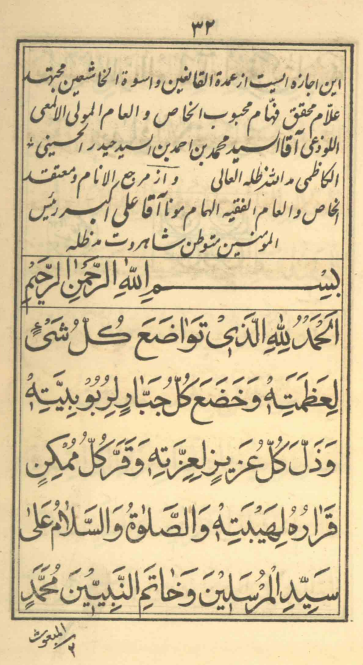 ٣٢
این اجازه ایست از عمدة القانعین و اسوة الخاشعین مجتهد
علام محقق فهام محبوب الخاص و العام المولی الالمعی
اللوذعی آقا السید محمد بن احمد بن السید حیدر الحسینی
الکاظمی مد الله ظله العالی و از مرجع الانام و معتقد
الخاص و العام الفقیه الهمام مولانا آقا علی اکبر رئیس
المؤمنین متوطن شاهرود مد ظله
بِسْمِ اللهِ الرَّحْمٰنِ الرَّحِيْمِ
اَلْحَمْدُ لِلّٰهِ الَّذِيْ تَوَاضَعَ كُلُّ شَيْءٍ
لِعَظَمَتِهٖ وَخَضَعَ كُلُّ جَبَّارٍ لِرُبُوْبِيَّتِهٖ
وَذَلَّ كُلُّ عَزِيْزٍ لِعِزَّتِهٖ وَقَرَّ كُلُّ مُمْكِنٍ
قَرَارَهُ لِهَيْبَتِهٖ وَالصَّلٰوةُ وَالسَّلَامُ عَلٰى
سَيِّدِ الْمُرْسَلِيْنَ وَخَاتَمِ النَّبِيِّيْنَ مُحَمَّدٍ
المبعوث